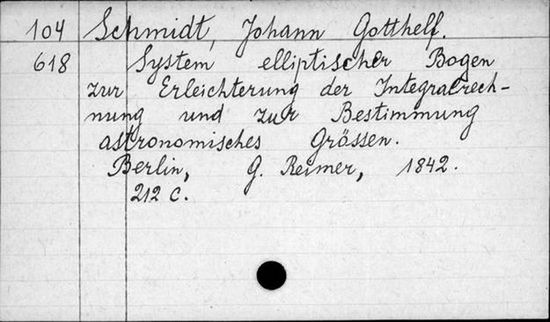 104 Schmidt, Johann Gotthelf.
618 System elliptischer Bogen
zur Erleichterung der Integralrech-
nung und zur Bestimmung
astronomisches Grössen.
Berlin, G. Reimer, 1842.
212 c.